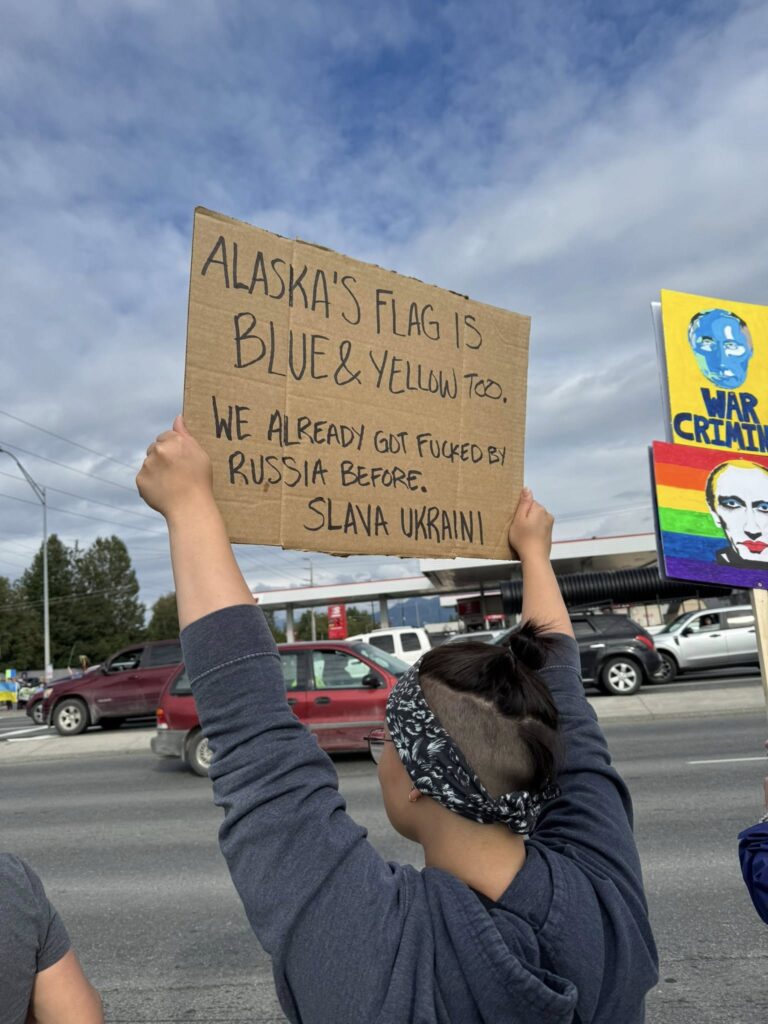 ALASKA'S FLAG IS
BLUE & YELLOW TOO.
WE ALREADY GOT FUCKED BY
RUSSIA BEFORE.
SLAVA UKRAINI
WAR